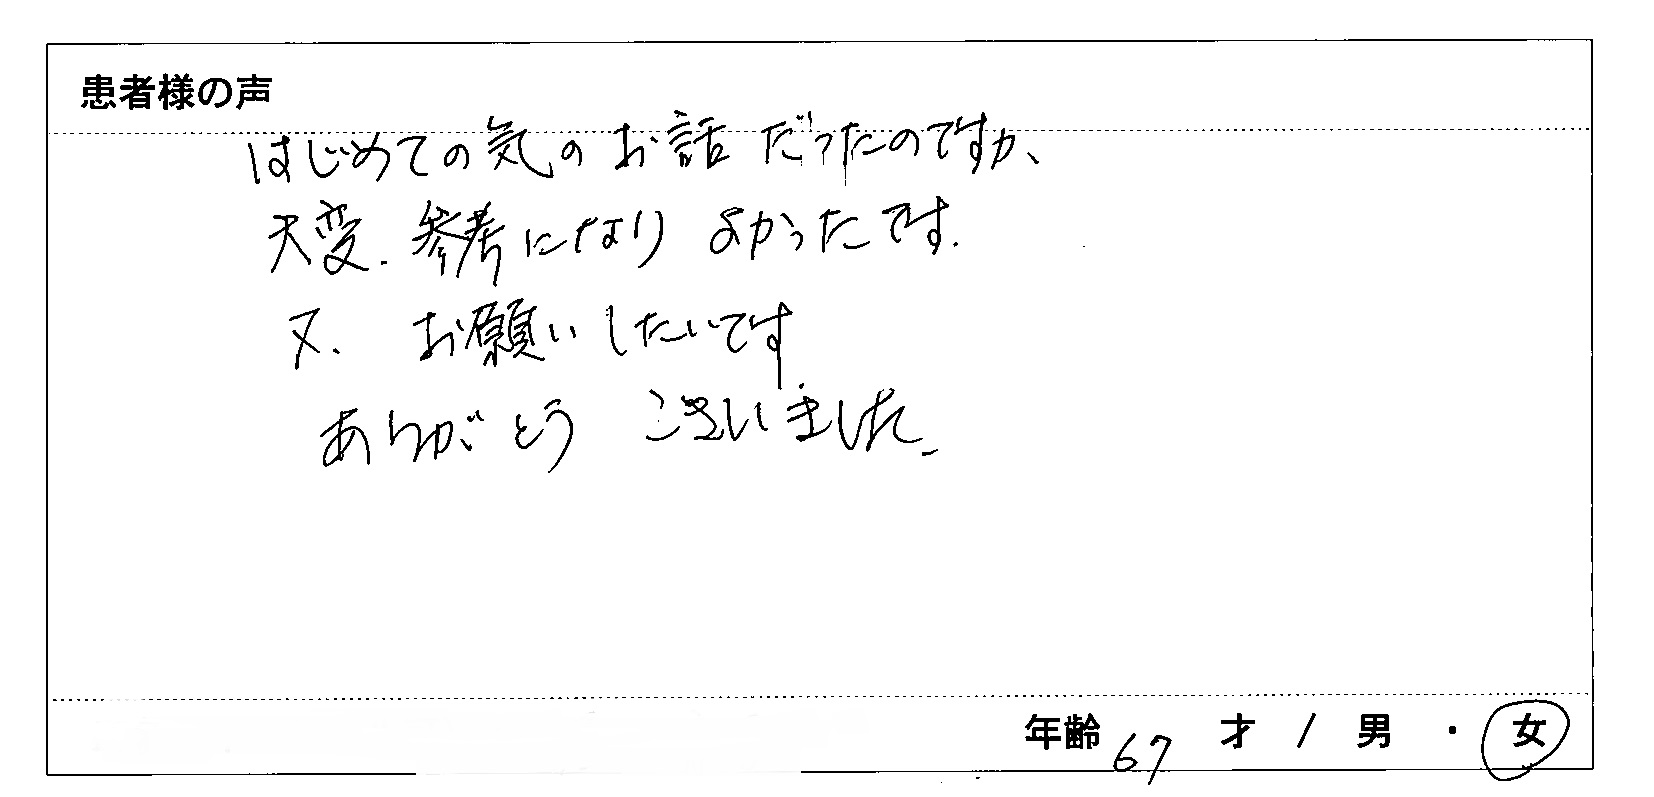 患者様の声
はじめての気のお話だったのですが、
大変、参考になりよかったです。
又、お願いしたいです
ありがとうございました。
年齢 67 才 / 男 ・ 女